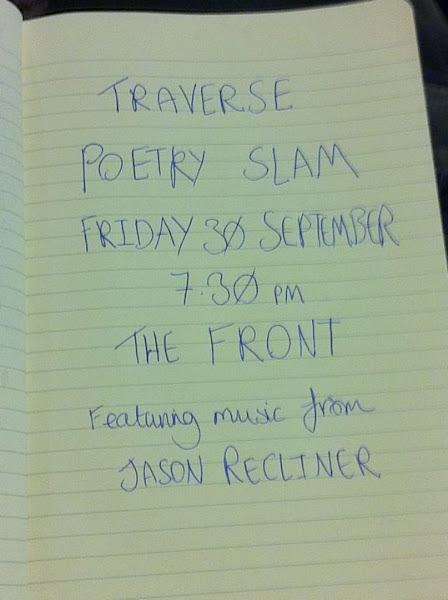 TRAVERSE
POETRY SLAM
FRIDAY 30 SEPTEMBER
7.30 PM
THE FRONT
Featuring music from
JASON RECLINER